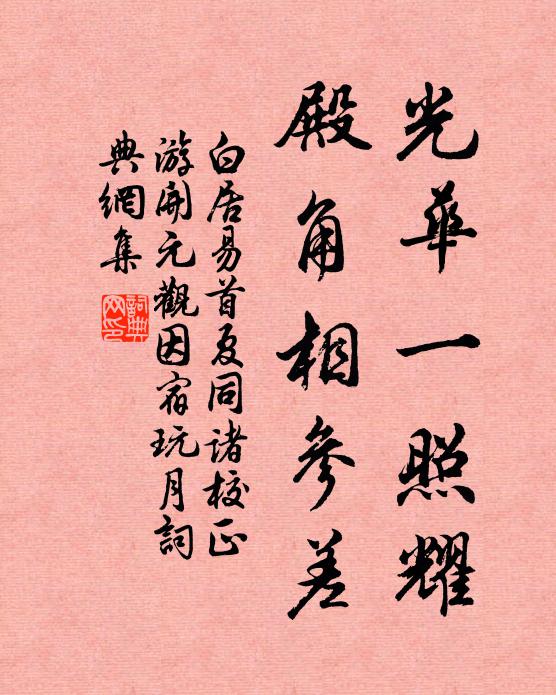 光華一照耀
殿角相參差
白居易首夏同諸校正
游開元觀因宿玩月詞
典網集
詞典網印